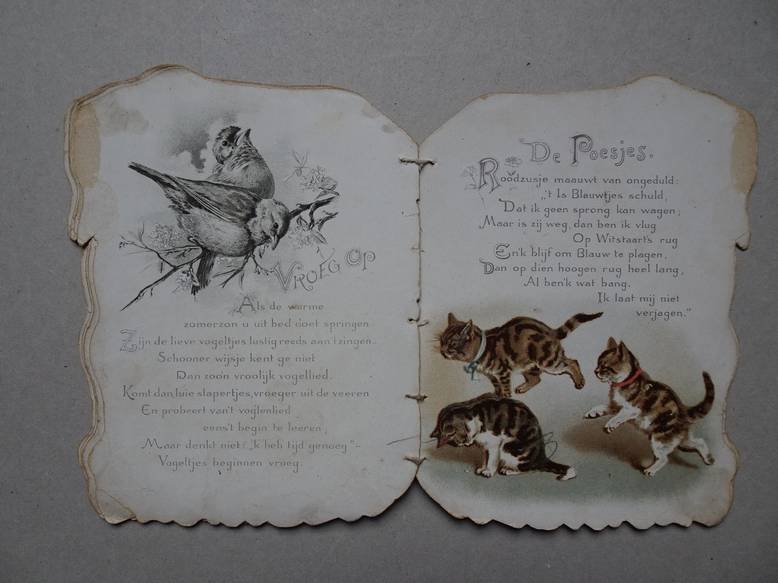 Vroeg op
Als de warme
zomerzon u uit bed doet springen
Zijn de lieve vogeltjes lustig reeds aan 't zingen.
Schooner wijsje kent ge niet
Dan zoon vroolijk vogellied.
Komt dan, luie slapertjes, vroeger uit de veeren
En probeert van't voglenlied
eens't begin te leeren,
Maar denkt niet: "Ik heb tijd genoeg"-
Vogeltjes beginnen vroeg.
De Poesjes.
Roodzusje maauwt van ongeduld:
„'t Is Blauwtjes schuld,
Dat ik geen sprong kan wagen;
Maar is zij weg, dan ben ik vlug
Op Witstaart's rug
En'k blijf om Blauw te plagen,
Dan op dien hoogen rug heel lang,
Al ben'k wat bang.
Ik laat mij niet
verjagen."